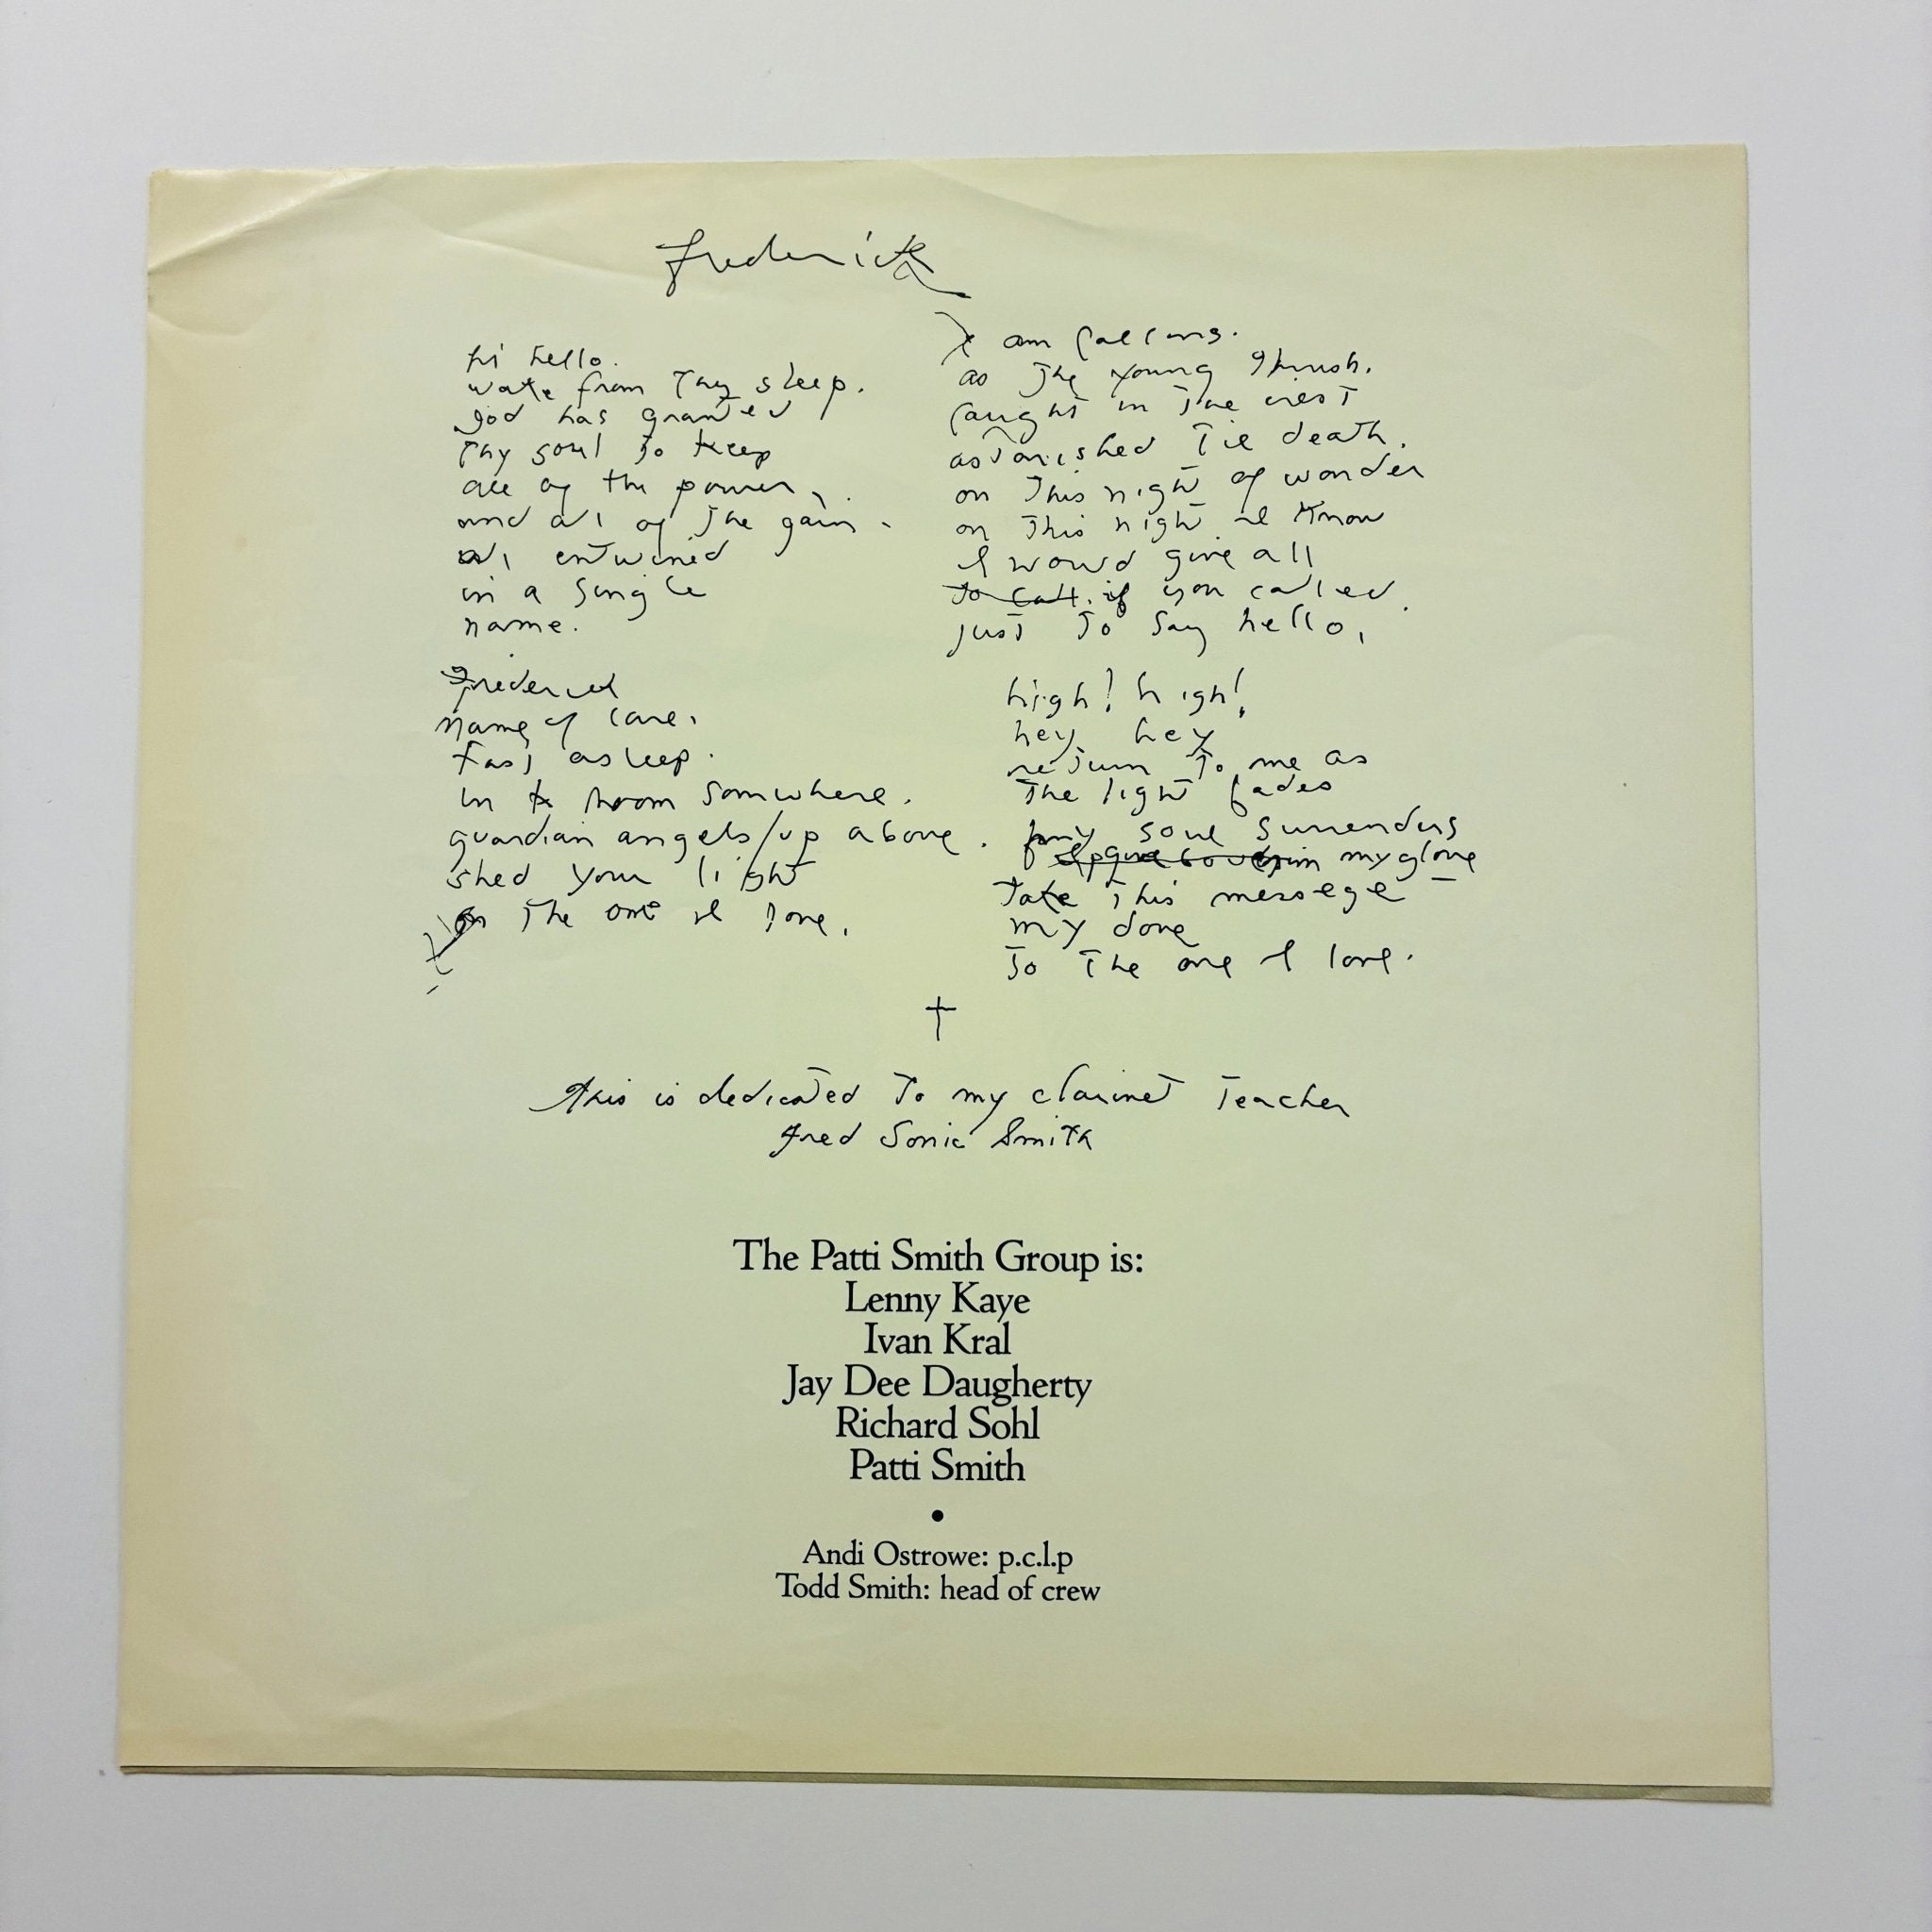 frederick
hi hello.
wake from Thy sleep.
god has granted
Thy soul To keep
all of the power
and all of The gain.
all entwined
in a single
name.
frederick
name of care.
fast asleep.
in room somwhere.
guardian angels/up above.
shed your light
on The one I love.
I am
as The young Thrush.
caught in The
astonished Til death.
on This night of wonder
on This night I know
I would give all
To call. if you called.
just To say hello.
high! high!
hey hey
return To me as
The light fades
my soul surrenders
my glove
Take This messege
my dove
To The one I love.
†
this is dedicated To my clarinet Teacher
fred Sonic Smith
The Patti Smith Group is:
Lenny Kaye
Ivan Kral
Jay Dee Daugherty
Richard Sohl
Patti Smith
•
Andi Ostrowe: p.c.l.p
Todd Smith: head of crew